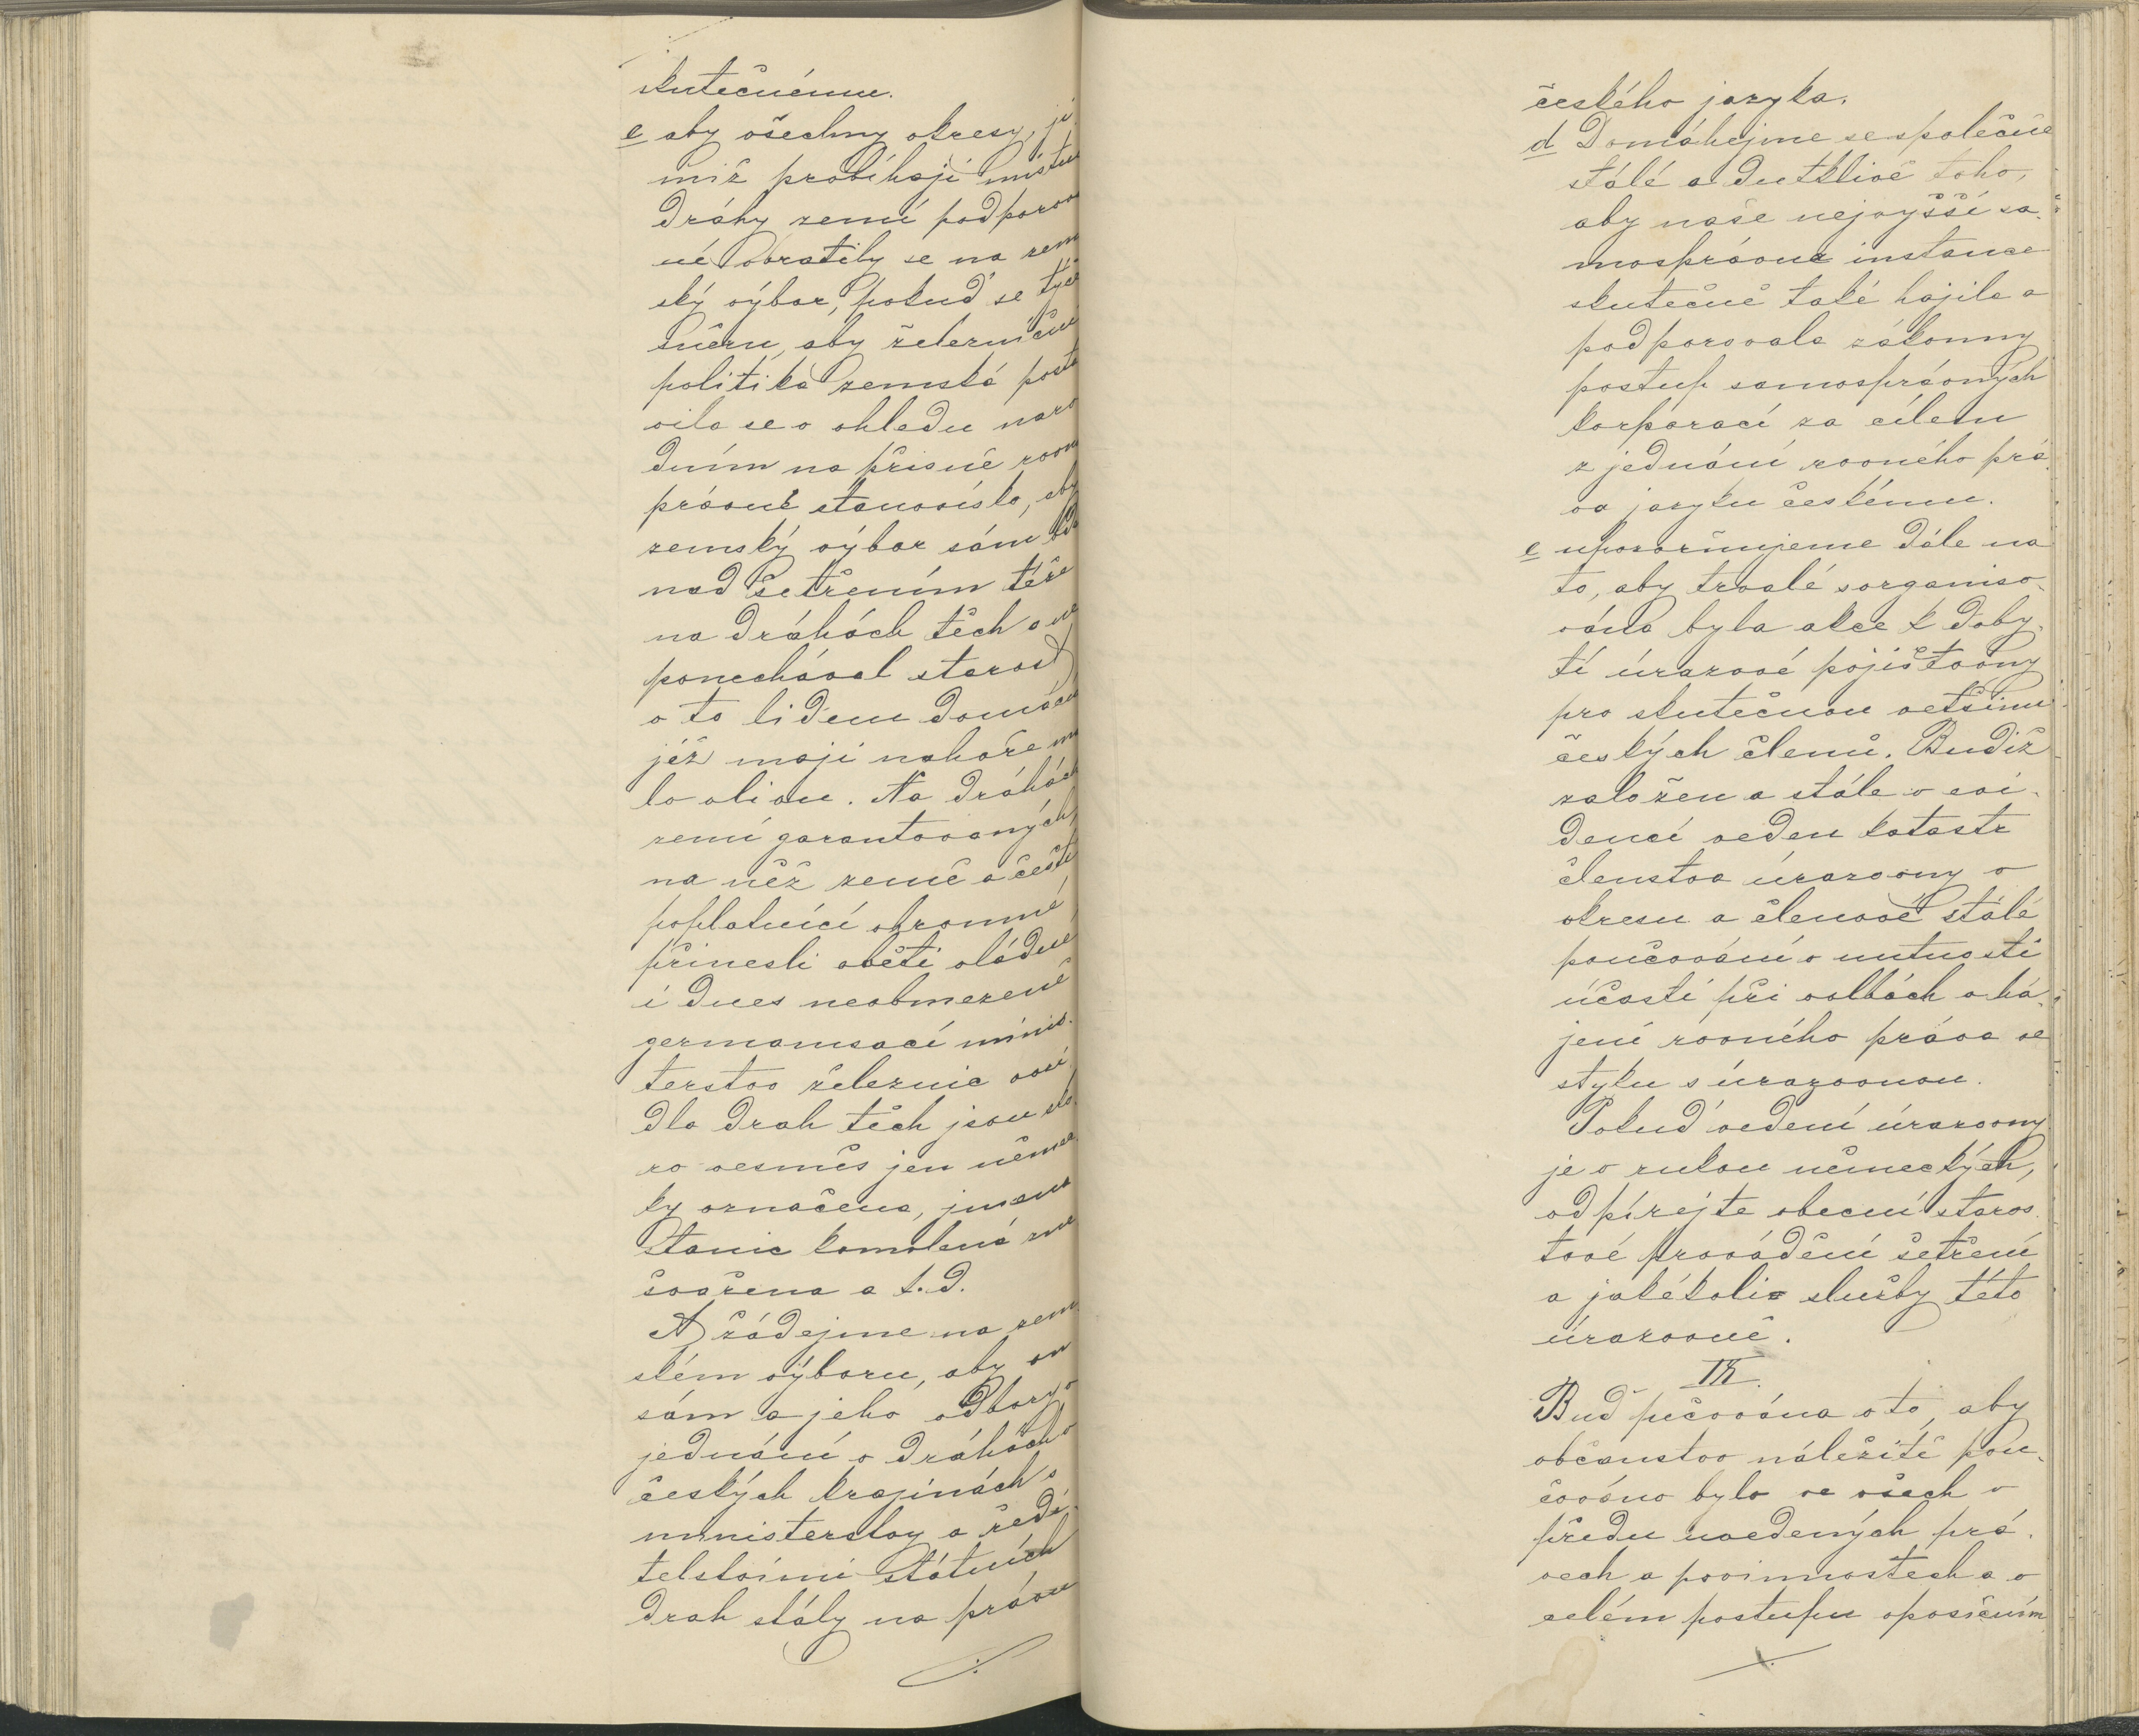 skutečnému.
c aby všechny okresy, ji
miž probíhají místní
dráhy zemí podporova
né obrátily se na zem
ský výbor, pokud se týče
směru, aby železniční
politika zemská posta
vila se v ohledu náro
dním na přísně rovno
právné stanovisko, aby
zemský výbor sám bděl
nad šetřením téže
na dráhách těch a ne
ponechával starost
o to lidem domácím
jěž mají nahoře má
lo vlivu. Na dráhách
zemí garantovaných,
na něž země a čeští
poplatníci ohromné
přinesli oběti vládne
i dnes neobmezeně
germanisací minis.
terstvo železnic vozi
dla drah těch jsou sko
ro vesměs jen němec
ky označena, jmena
stanic komolená zne
švařena a t.d.
A žádejme na zem
ském výboru, aby on
sám a jeho odbory v
jednání o dráhách v
českých krajinách s
ministerstvy a ředi
telstvími státních
drah stály na právu
./.
českého jazyka.
d Domáhejme se společně
stálé a dutklivě toho,
aby naše nejvyšší sa-
mosprávná instance
skutečně také hájila a
podporovala zákonný
postup samosprávných
korporací za cílem
zjednání rovného prá
va jazyku českému.
e upozorňujeme dále na
to, aby trvalé sorganiso-
vána byla akce k doby-
tí úrazové pojišťovny
pro skutečnou většinu
českých členů. Budiž
založen a stále v evi-
denci veden katastr
členstva úrazovny v
okresu a členové stálé
poučováni o nutnosti
účasti při volbách a há-
jení rovného práva ve
styku s úrazovnou.
Pokud vedení úrazovny
je v rukou německých,
odpírejte obecní staros
tové provádění šetření
a jakékoliv služby této
úrazovně.
IX.
Buď pečováno o to, aby
občanstvo náležitě pou-
čováno bylo ve všech v
předu uvedených prá-
vech a povinnostech a o
celém postupu oposičním
./.